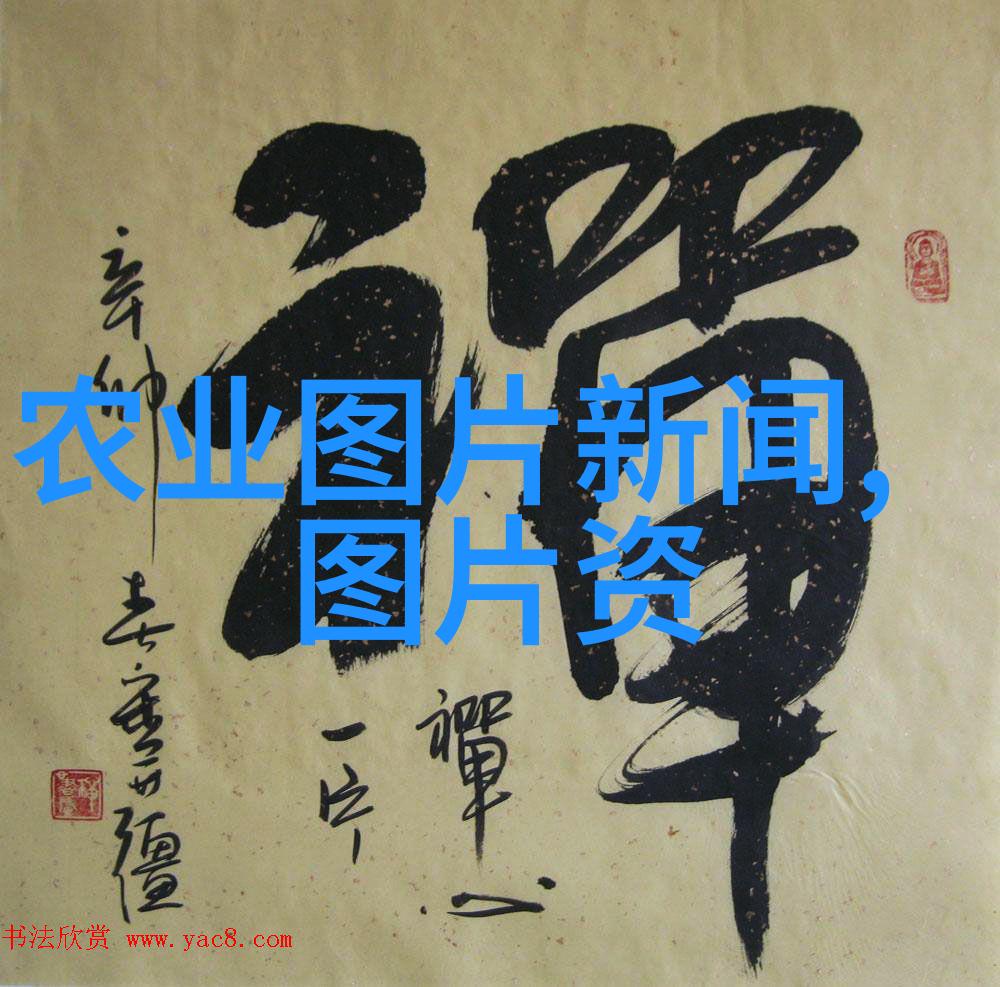 禪
禪心
一片
辛卯春
农业图片新闻,
图片资
书法欣赏 www.yac8.com